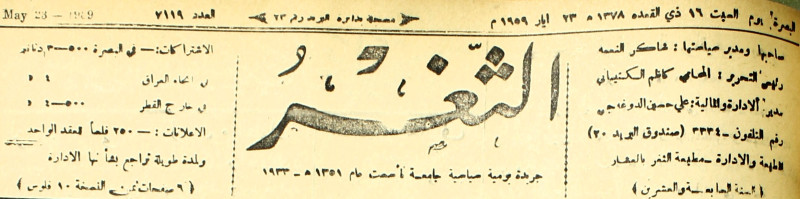 البصرة: يوم السبت ١٦ ذي القعدة ١٣٧٨ ه ٢٣ ايار ١٩٥٩ م
مسجلة بدائرة البريد رقم ٢٣
العدد ٧١١٩
May 23 - 1959
صاحبها ومدير سياستها: شاكر النعمة
رئيس التحرير: المحامي كاظم
مدير الادارة والمالية: علي حسين
رقم التلفون - ٣٣٣٤ (صندوق البريد ٢٠)
المطبعة والادارة - مطبعة الثغر بالعشار
(السنة السابعة والعشرين)
الثغر
جريدة يومية سياسية جامعة تأسست عام ١٣٥١ ه - ١٩٣٣ م
الاشتراكات: - في البصرة ٥٠٠-٣ دنانير
في انحاء العراق ٤ د
في خارج القطر ٥٠٠-٤ د
الاعلانات: - ٢٥٠ فلساً للعقد الواحد
ولمدة طويلة تراجع بشأنها الادارة
(٦ صفحات ثمن النسخة ١٠ فلوس)